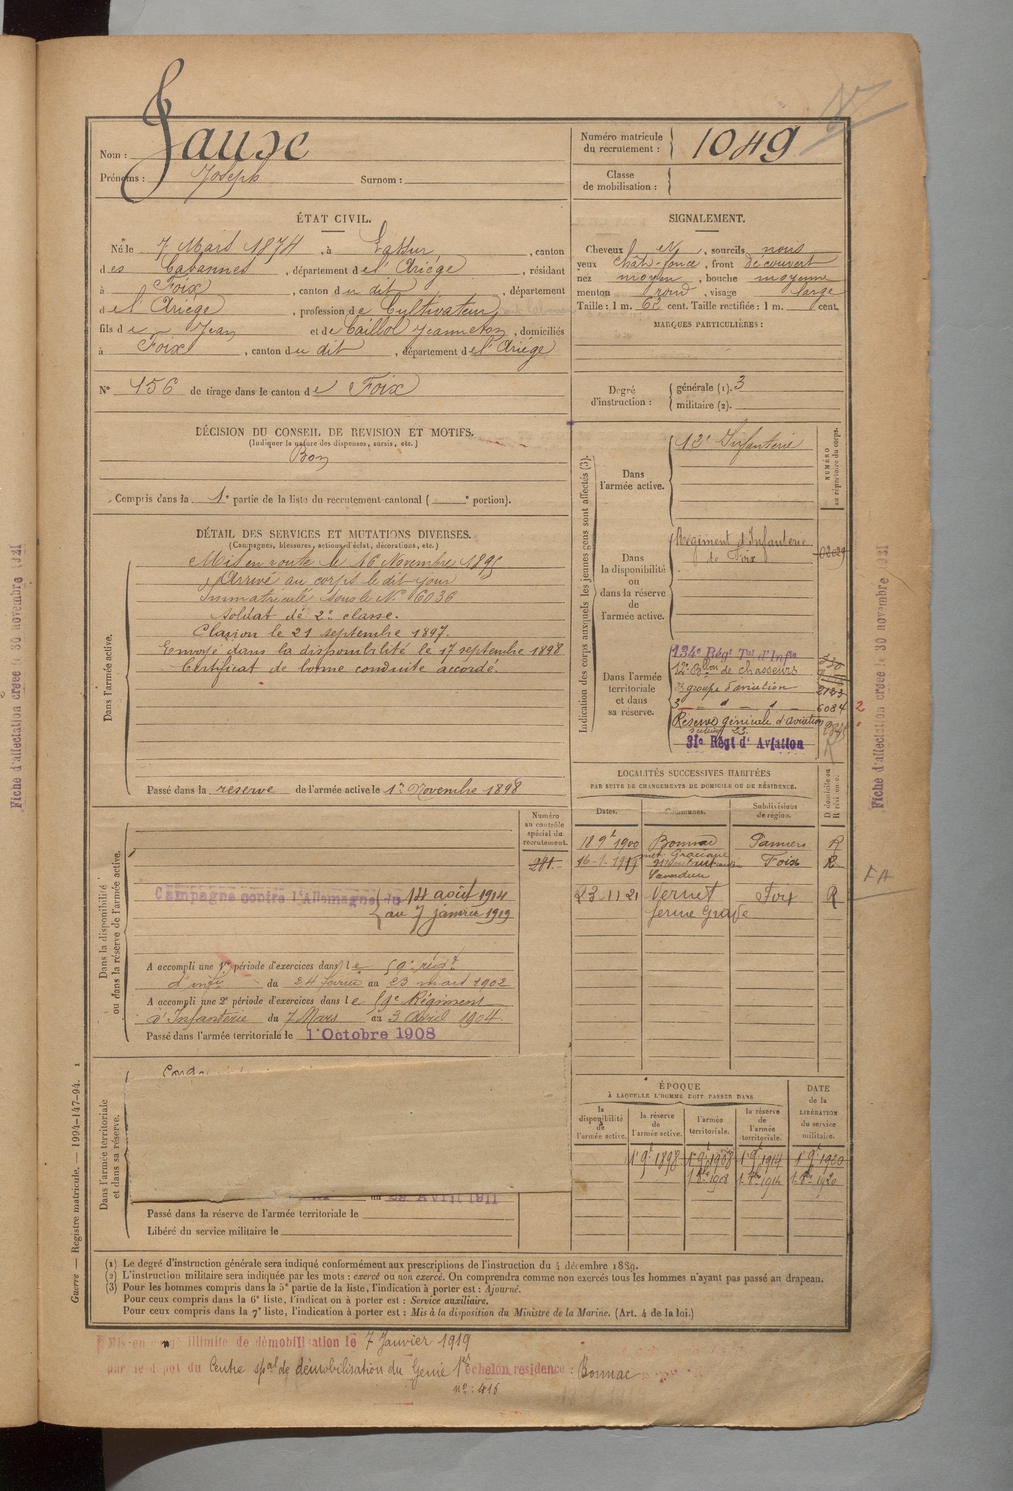 Nom : Jauze
Prénoms : Joseph Surnom :
Numéro matricule du recrutement : 1049
Classe de mobilisation :
ÉTAT CIVIL.
Né le 7 Mars 1874, à , canton
des Cabannes, département de l'Ariége, résidant
à Foix, canton du dit, département
de l'Ariége, profession de Cultivateur,
fils de Jean et de Caillol Jeanneton, domiciliés
à Foix, canton du dit, département de l'Ariége
N° 156 de tirage dans le canton de Foix
DÉCISION DU CONSEIL DE REVISION ET MOTIFS.
(Indiquer la nature des dispenses, sursis, etc.)
Bon
Compris dans la 1e partie de la liste du recrutement cantonal ( e portion).
DÉTAIL DES SERVICES ET MUTATIONS DIVERSES.
(Campagnes, blessures, actions d'éclat, décorations, etc.)
Dans l'armée active.
Mis en route le 16 Novembre 1895
Arrivé au corps le dit jour
Immatriculé sous le N° 6036
Soldat de 2e classe.
Clairon le 21 septembre 1897.
Envoyé dans la disponibilité le 17 septembre 1898
Certificat de bonne conduite accordé.
Passé dans la réserve de l'armée active le 1er Novembre 1898
Numéro au contrôle spécial du recrutement.
Dans la disponibilité ou dans la réserve de l'armée active.
Campagne contre l'Allemagne du 14 août 1914
au 7 janvier 1919
A accompli une 1re période d'exercices dans le 59e régt
d'infie du 24 février au 23 mars 1902
A accompli une 2e période d'exercices dans le Régiment
d'Infanterie du 7 Mars au 3 Avril 1904.
Passé dans l'armée territoriale le 1 Octobre 1908
Dans l'armée territoriale et dans sa réserve.
au Avril 1911
Passé dans la réserve de l'armée territoriale le
Libéré du service militaire le
SIGNALEMENT.
Cheveux Nrs, sourcils noirs
yeux chât-foncé, front découvert
nez moyen, bouche moyenne
menton rond, visage large
Taille : 1 m. cent. Taille rectifiée : 1 m. cent.
MARQUES PARTICULIÈRES :
Degré d'instruction : générale (1). 3
militaire (2).
Indication des corps auxquels les jeunes gens sont affectés (3).
NUMÉRO au répertoire du corps.
Dans l'armée active.
Infanterie
Dans la disponibilité ou dans la réserve de l'armée active.
Régiment d'Infanterie
de Foix
Dans l'armée territoriale et dans sa réserve.
134e Régt Tal d'Infie
12e Bon de chasseurs
2e groupe d'aviation 2123
3 " " " 6084 2
Réserve générale d'aviation
31e Régt d'Aviation
LOCALITÉS SUCCESSIVES HABITÉES
PAR SUITE DE CHANGEMENTS DE DOMICILE OU DE RÉSIDENCE.
Dates. Communes. Subdivisions de région. D domicile ou R résidence.
1900 Bonnac Pamiers R
16-1-1917 Saverdun Foix R
23 11 21 Vernet Foix R
ferme Grave
FA
ÉPOQUE
À LAQUELLE L'HOMME DOIT PASSER DANS
DATE de la LIBÉRATION du service militaire.
la disponibilité de l'armée active. la réserve de l'armée active. l'armée territoriale. la réserve de l'armée territoriale.
1er 9e 1898 1er 9e 1908 1er 9e 1914 1er 9e 1920
1er 8bre 1908 1er 8bre 1914 1er 8bre 1920
(1) Le degré d'instruction générale sera indiqué conformément aux prescriptions de l'instruction du 4 décembre 1889.
(2) L'instruction militaire sera indiquée par les mots : exercé ou non exercé. On comprendra comme non exercés tous les hommes n'ayant pas passé au drapeau.
(3) Pour les hommes compris dans la 5e partie de la liste, l'indication à porter est : Ajourné.
Pour ceux compris dans la 6e liste, l'indication à porter est : Service auxiliaire.
Pour ceux compris dans la 7e liste, l'indication à porter est : Mis à la disposition du Ministre de la Marine. (Art. 4 de la loi.)
Guerre — Registre matricule. — 1994-147-94. 1
Mis en congé illimité de démobilisation le 7 Janvier 1919
par le dépôt du Centre spal de démobilisation du Génie 1er échelon résidence : Bonnac
n° : 416
Fiche d'affectation créée le 30 novembre 1921
Fiche d'affectation créée le 30 novembre 1921